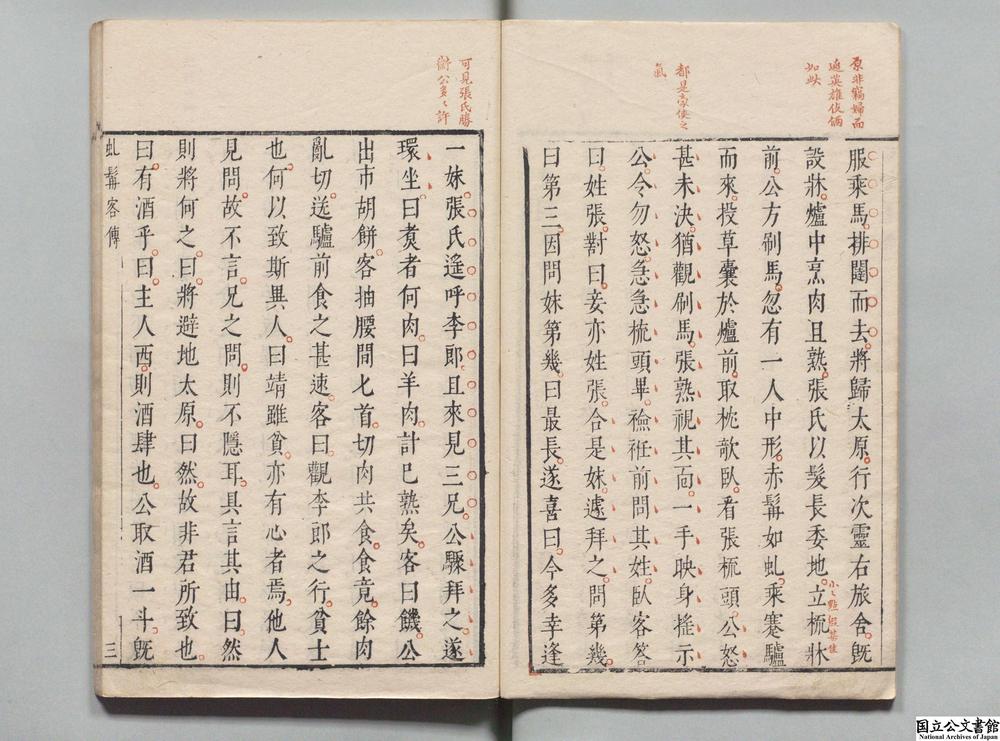 原非竊婦而
逃英雄伎倆
如此
都是豪俠之
氣
服乘馬排闥而去將歸太原行次靈右旅舍既
設牀爐中烹肉且熟張氏以髮長委地立梳牀
前公方刷馬忽有一人中形赤髯如虬乘蹇驢
而來投草囊於爐前取枕欹臥看張梳頭公怒
甚未決猶觀刷馬張熟視其面一手映身搖示
公令勿怒急急梳頭畢襝衽前問其姓臥客答
曰姓張對曰妾亦姓張合是妹遽拜之問第幾
曰第三因問妹第幾曰最長遂喜曰今多幸逢
可見張氏勝
衛公多〻許
一妹張氏遙呼李郎且來見三兄公驟拜之遂
環坐曰煑者何肉曰羊肉計已熟矣客曰饑公
出市胡餅客抽腰間匕首切肉共食食竟餘肉
亂切送驢前食之甚速客曰觀李郎之行貧士
也何以致斯異人曰靖雖貧亦有心者焉他人
見問故不言兄之問則不隱耳具言其由曰然
則將何之曰將避地太原曰然故非君所致也
曰有酒乎曰主人西則酒肆也公取酒一斗既
虬髯客傳 三
国立公文書館
National Archives of Japan